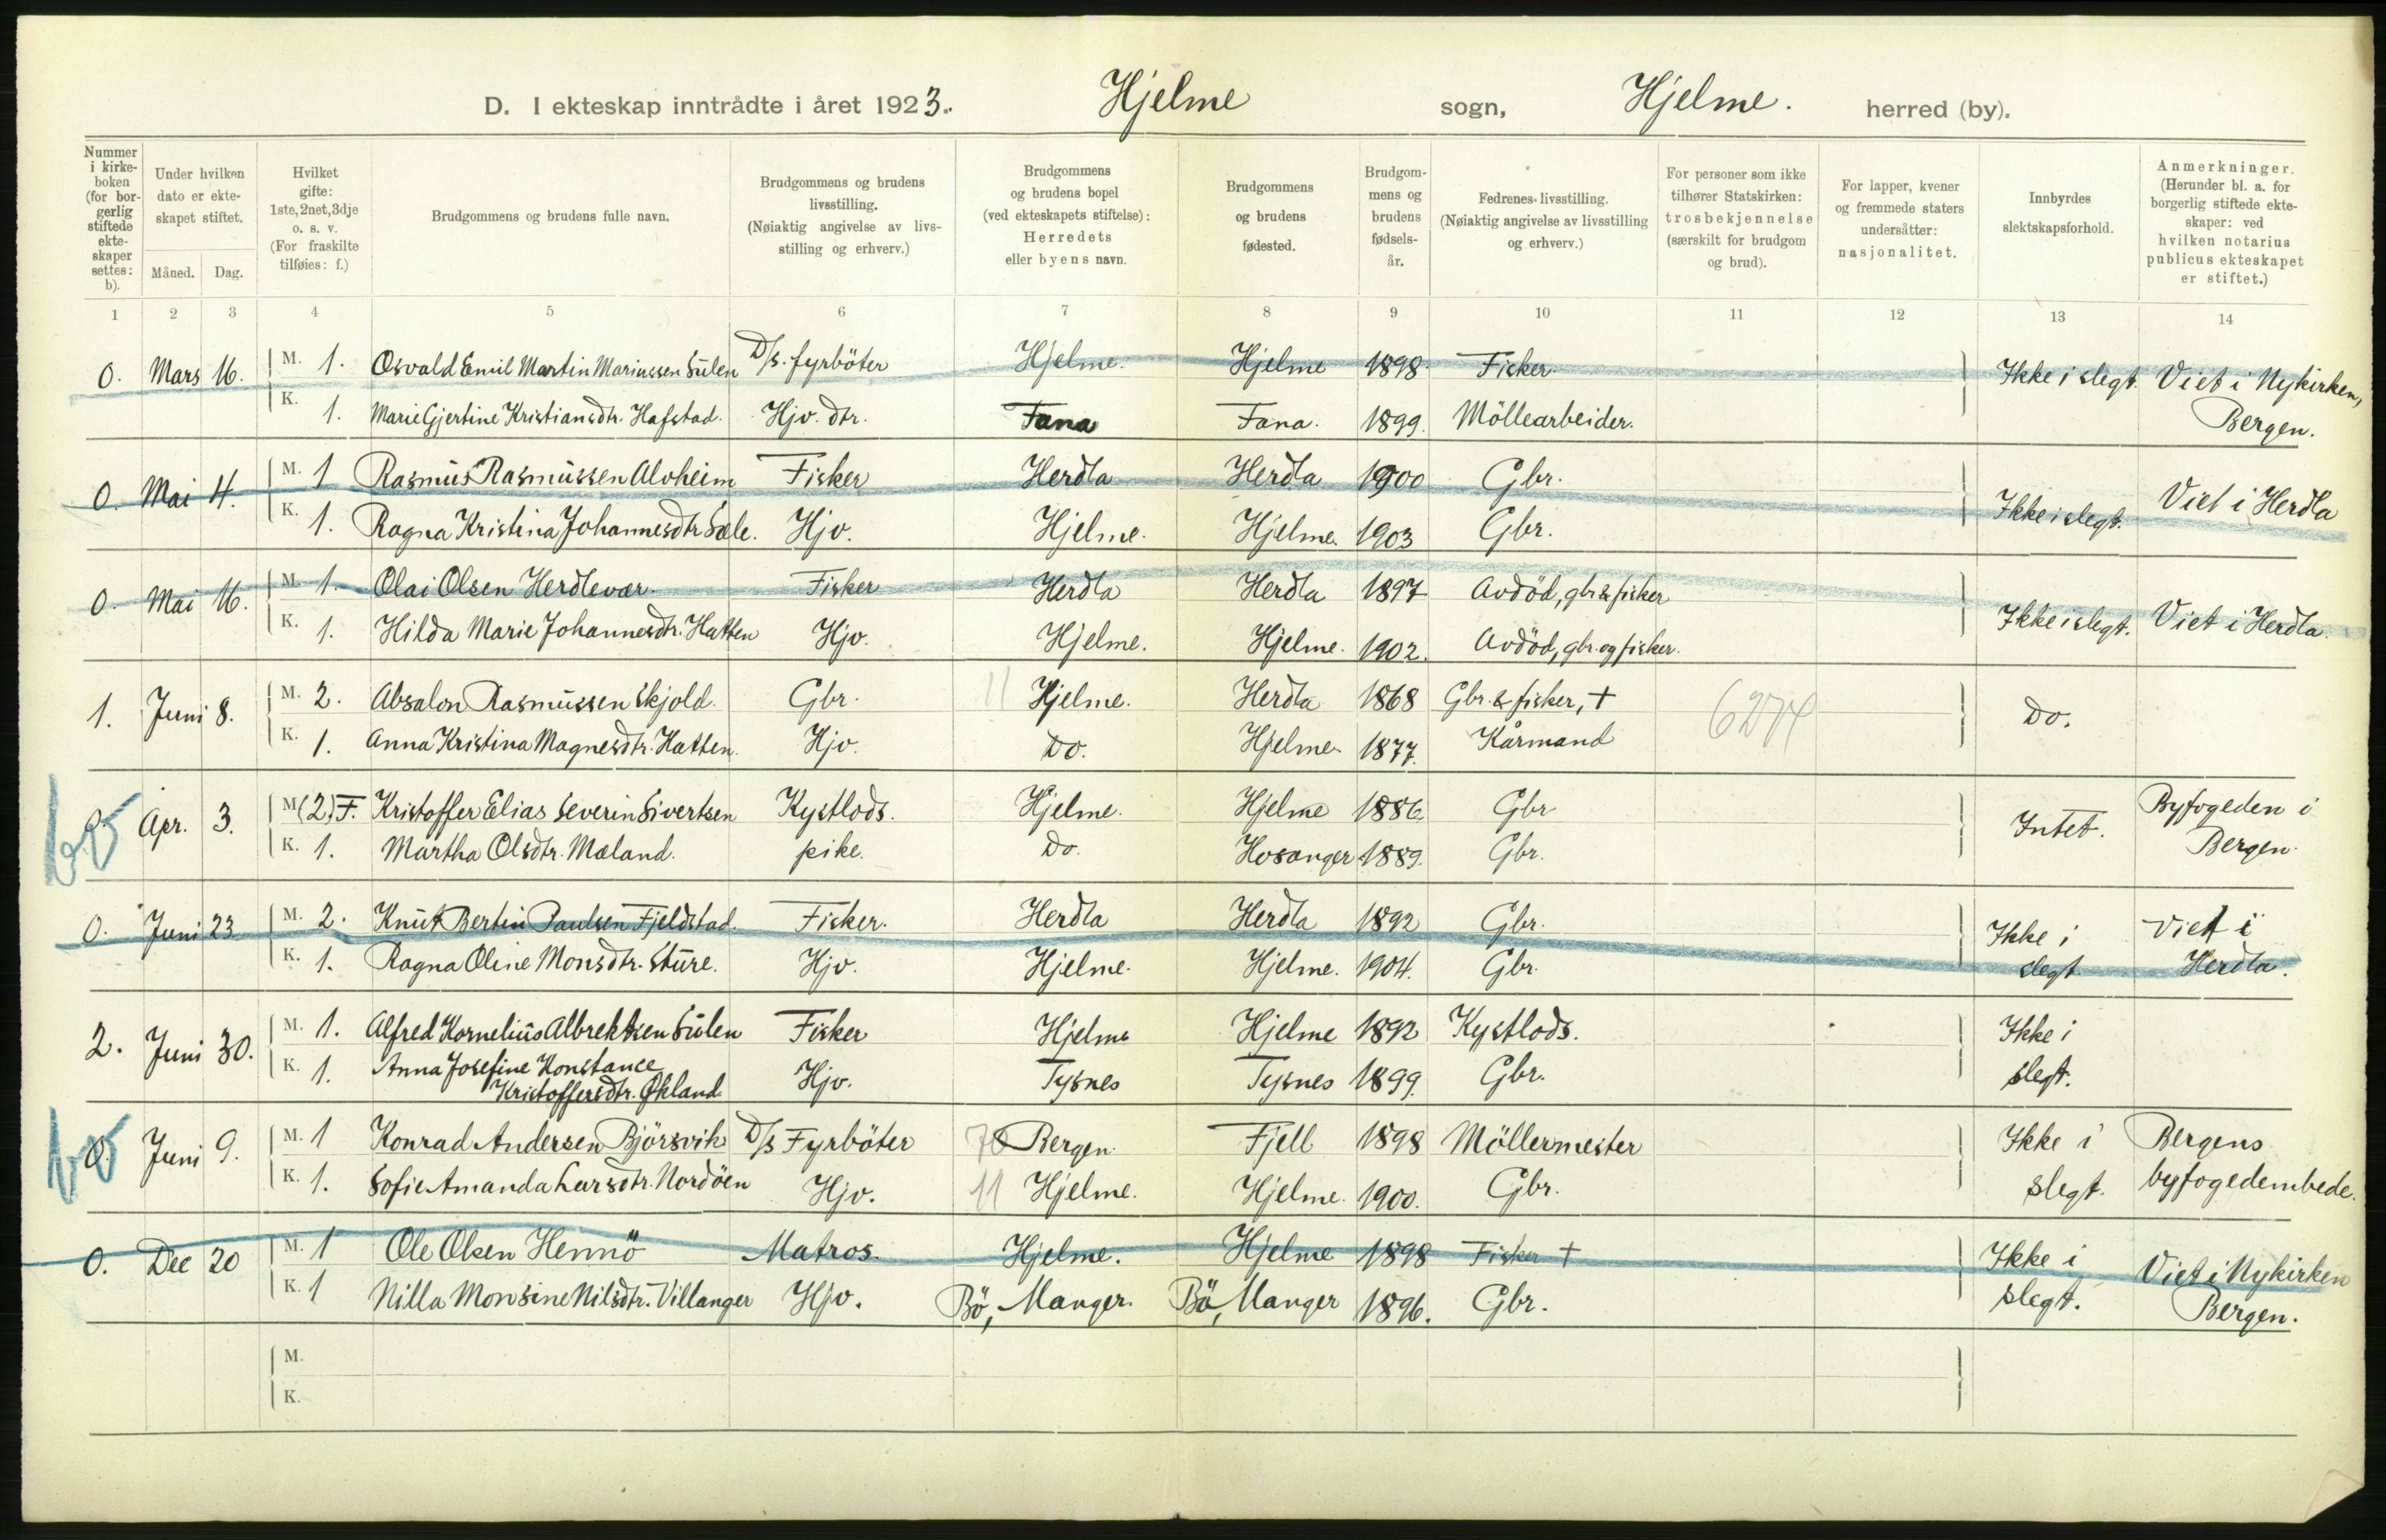 D. I ekteskap inntrådte i året 1923. Hjelme sogn, Hjelme. herred (by).
Nummer i kirkeboken (for borgerlig stiftede ekteskaper settes: b).
Under hvilken dato er ekteskapet stiftet.
Måned. Dag.
Hvilket gifte: 1ste, 2net, 3dje o. s. v. (For fraskilte tilføies: f.)
Brudgommens og brudens fulle navn.
Brudgommens og brudens livsstilling. (Nøiaktig angivelse av livsstilling og erhverv.)
Brudgommens og brudens bopel (ved ekteskapets stiftelse): Herredets eller byens navn.
Brudgommens og brudens fødested.
Brudgommens og brudens fødselsår.
Fedrenes livsstilling. (Nøiaktig angivelse av livsstilling og erhverv.)
For personer som ikke tilhører Statskirken: trosbekjennelse (særskilt for brudgom og brud).
For lapper, kvener og fremmede staters undersåtter: nasjonalitet.
Innbyrdes slektskapsforhold.
Anmerkninger. (Herunder bl. a. for borgerlig stiftede ekteskaper: ved hvilken notarius publicus ekteskapet er stiftet.)
1 2 3 4 5 6 7 8 9 10 11 12 13 14
0. Mars 16. M. 1. Osvald Emil Martin Mariussen Sulen D/s. fyrböter Hjelme. Hjelme 1898. Fisker. Ikke i slegt. Viet i Nykirken,
K. 1. Marie Gjertine Kristiansdtr. Hafstad. Hjv. dtr. Fana Fana. 1899. Möllearbeider. Bergen.
0. Mai 4. M. 1 Rasmus Rasmussen Alvheim Fisker Herdla Herdla 1900 Gbr. Ikke i slegt. Viet i Herdla
K. 1. Ragna Kristina Johannesdtr Sæle. Hjv. Hjelme. Hjelme. 1903 Gbr.
0. Mai 16. M. 1. Olai Olsen Herdlevær. Fisker Herdla Herdla 1897 Avdöd, gbr & fisker Ikke i slegt. Viet i Herdla.
K. 1. Hilda Marie Johannesdtr. Hatten Hjv. Hjelme. Hjelme. 1902. Avdöd, gbr. og fisker.
1. Juni 8. M. 2. Absalon Rasmussen Skjold. Gbr. 11 Hjelme. Herdla 1868 Gbr. & fisker, + 6274 Do.
K. 1. Anna Kristina Magnesdtr. Hatten. Hjv. Do. Hjelme. 1877. Kårmand
Apr. 3. M (2) F. Kristoffer Elias Severin Sivertsen Kystlods. Hjelme. Hjelme 1886. Gbr Intet. Byfogeden i
K. 1. Martha Olsdtr. Mæland. pike. Do. Hosanger 1889. Gbr. Bergen.
0. Juni 23. M. 2. Knut Bertin Paulsen Fjeldstad. Fisker. Herdla Herdla 1892 Gbr. Ikke i Viet i
K. 1. Ragna Oline Monsdtr. Sture. Hjv. Hjelme. Hjelme. 1904. Gbr. slegt Herdla.
2. Juni 30. M. 1. Alfred Kornelius Albrektsen Sulen Fisker Hjelme Hjelme 1892 Kystlods. Ikke i
K. 1. Anna Josefine Konstance Kristoffersdtr. Økland. Hjv. Tysnes Tysnes 1899. Gbr. slegt.
0. Juni 9. M. 1 Konrad Andersen Björsvik D/s Fyrböter 70 Bergen. Fjell 1898 Möllermester Ikke i Bergens
K. 1. Sofie Amanda Larsdtr. Nordöen Hjv. 11 Hjelme. Hjelme. 1900. Gbr. slegt. byfogedembede.
0. Dec 20 M. 1 Ole Olsen Hennö Matros. Hjelme. Hjelme 1898 Fisker + Ikke i Viet i Nykirken
K. 1 Nilla Monsine Nilsdtr. Villanger Hjv. Bö, Manger. Bö, Manger 1896. Gbr. slegt. Bergen.
M.
K.